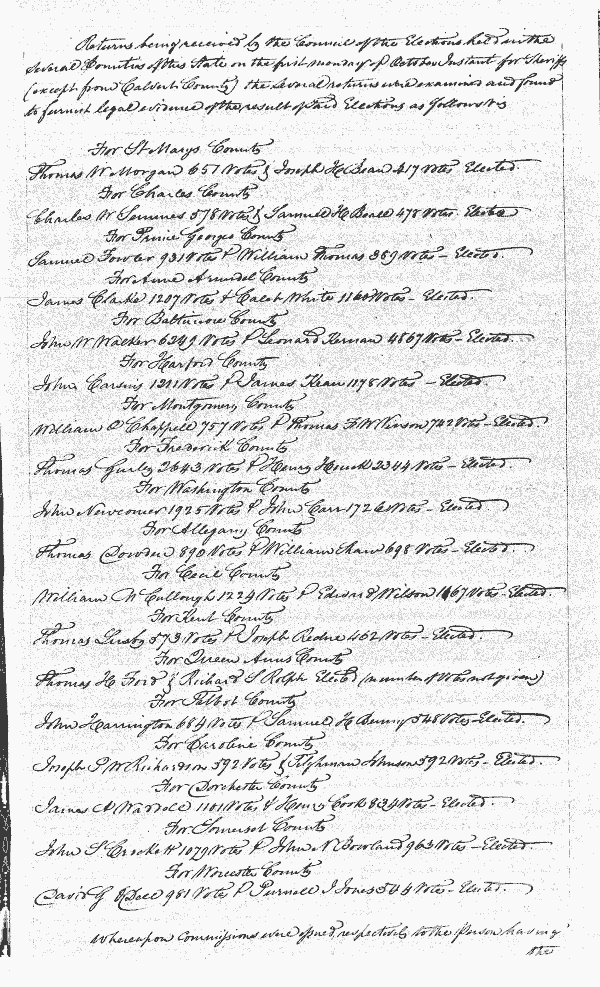 Returns being received by the Council of the Elections held in the
several Counties of this State on the first monday of October Instant for Sheriffs
(except from Calvert County) the several returns were examined and found
to furnish legal evidence of the result of said Elections as follows viz
For St Marys County
Thomas W Morgan 651 Votes & Joseph H Bean 417 Votes Elected.
For Charles County
Charles W Semmes 578 Votes & Samuel H Beall 478 Votes Elected
For Prince Georges County
Samuel Fowler 931 Votes & William Thomas 389 Votes - Elected.
For Anne Arundel County
James Clarke 1207 Votes & Caleb White 1160 Votes - Elected.
For Baltimore County
John W Walker 6249 Votes & Leonard Kernan 4867 Votes - Elected.
For Harford County
John Carsins 1211 Votes & James Kean 1178 Votes - Elected.
For Montgomery County
William O Chappell 757 Votes & Thomas F W Vinson 742 Votes - Elected.
For Frederick County
Thomas Gurley 2643 Votes & Henry Houck 2344 Votes - Elected.
For Washington County
John Newcomer 1925 Votes & John Carr 1726 Votes - Elected.
For Allegany County
Thomas Dowden 890 Votes & William Shaw 698 Votes - Elected.
For Cecil County
William McCullough 1224 Votes & Edward Wilson 1167 Votes - Elected.
For Kent County
Thomas Lusby 573 Votes & Joseph Redue 462 Votes - Elected.
For Queen Anns County
Thomas H Ford & Richard S Rolph Elected (number of Votes not given)
For Talbot County
John Harrington 684 Votes & Samuel H Benny 548 Votes - Elected.
For Caroline County
Joseph P W Richardson 592 Votes & Tilghman Johnson 592 Votes - Elected.
For Dorchester County
James A Waddell 1101 Votes & Henry Cook 834 Votes - Elected.
For Somerset County
John S 1079 Votes & John N Bowland 963 Votes - Elected.
For Worcester County
David G Odell 981 Votes & Purnell J Jones 504 Votes - Elected.
Whereupon Commissions were issued respectively to the Person having
the